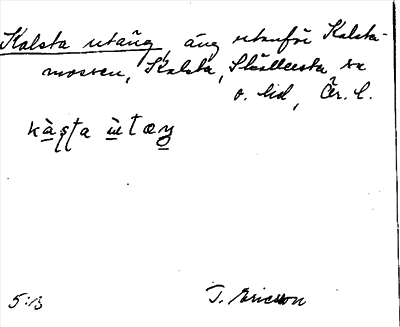 Kalsta utäng, äng utanför Kalsta-
mossen, Kalsta, Skällersta sn
o. hd, Ör. l.
kàsta ùtæŋ
5:B T. Ericsson